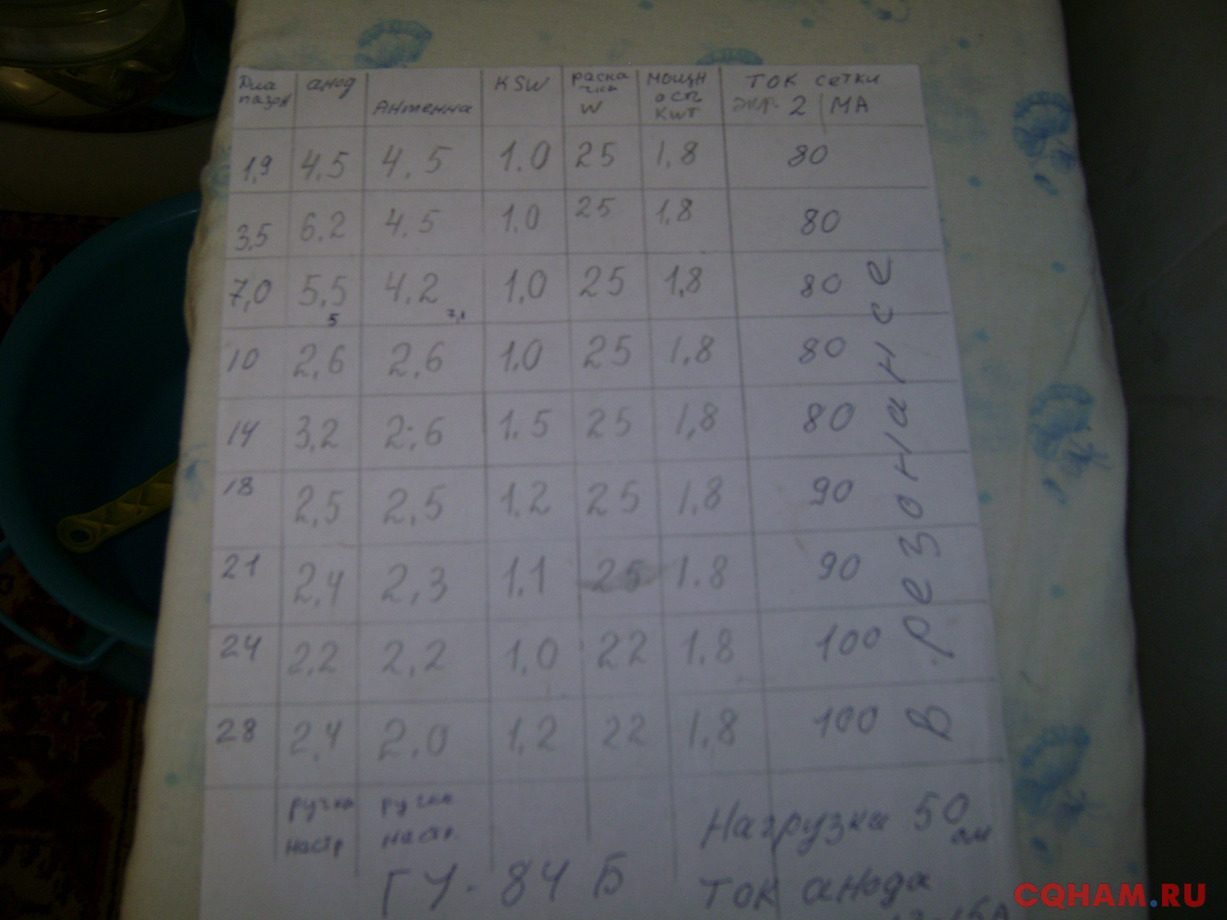 Диа анод KSW раска мощн ток сетки
пазон Антенна чки ость экр 2 МА
W КWT
1,9 4,5 4.5 1.0 25 1,8 80
3,5 6.2 4.5 1.0 25 1,8 80
7,0 5,5 4.2 1,0 25 1,8 80
5 7,1
10 2,6 2,6 1.0 25 1.8 80
14 3,2 2,6 1.5 25 1,8 80
18 2,5 2,5 1.2 25 1.8 90
21 2,4 2,3 1.1 25 1.8 90
24 2,2 2,2 1,0 22 1.8 100
28 2,4 2,0 1,2 22 1,8 100
в резонансе
ручка ручка
настр настр.
Нагрузка 50 ом
ГУ-84 Б ток анода
CQHAM.RU